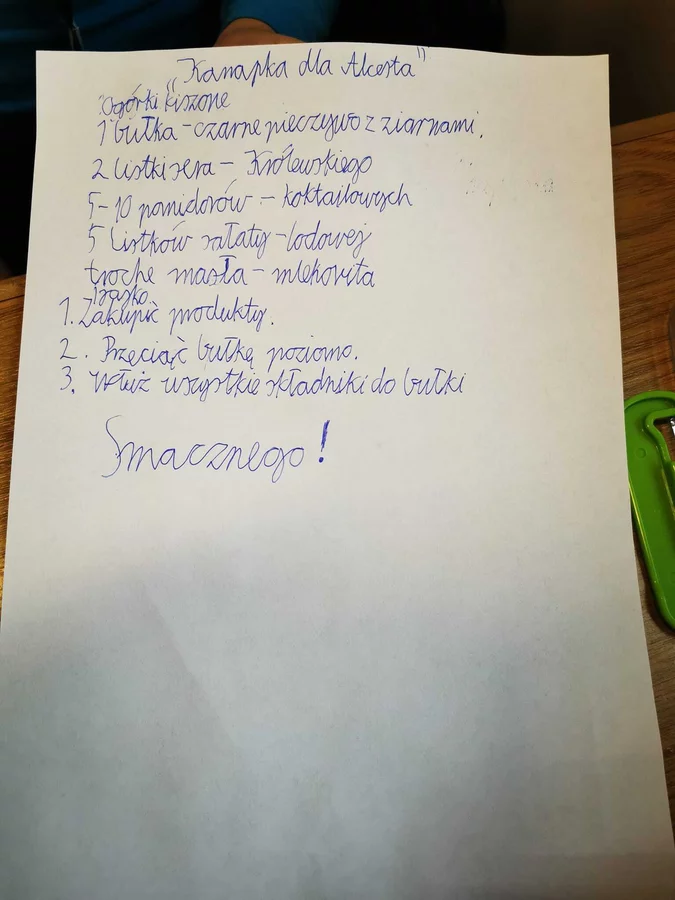 "Kanapka dla Alcesta"
Ogórki kiszone
1 bułka - czarne pieczywo z ziarnami.
2 listki sera - Królewskiego
5-10 pomidorów - koktajlowych
5 listków sałaty - lodowej
trochę masła - mlekovita
1. Zakupić produkty.
2. Przeciąć bułkę poziomo.
3. Włuż wszystkie składniki do bułki
Smacznego!